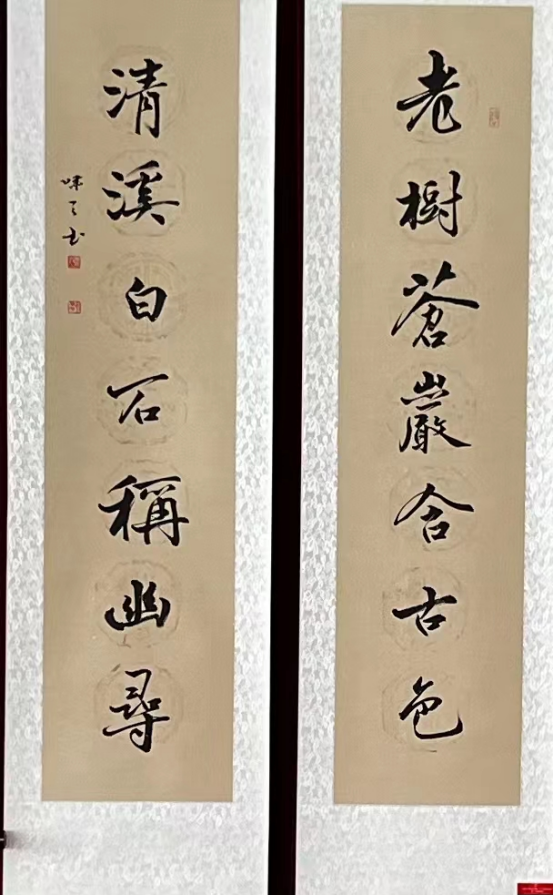 老樹蒼巖含古色
清溪白石稱幽尋
味天書